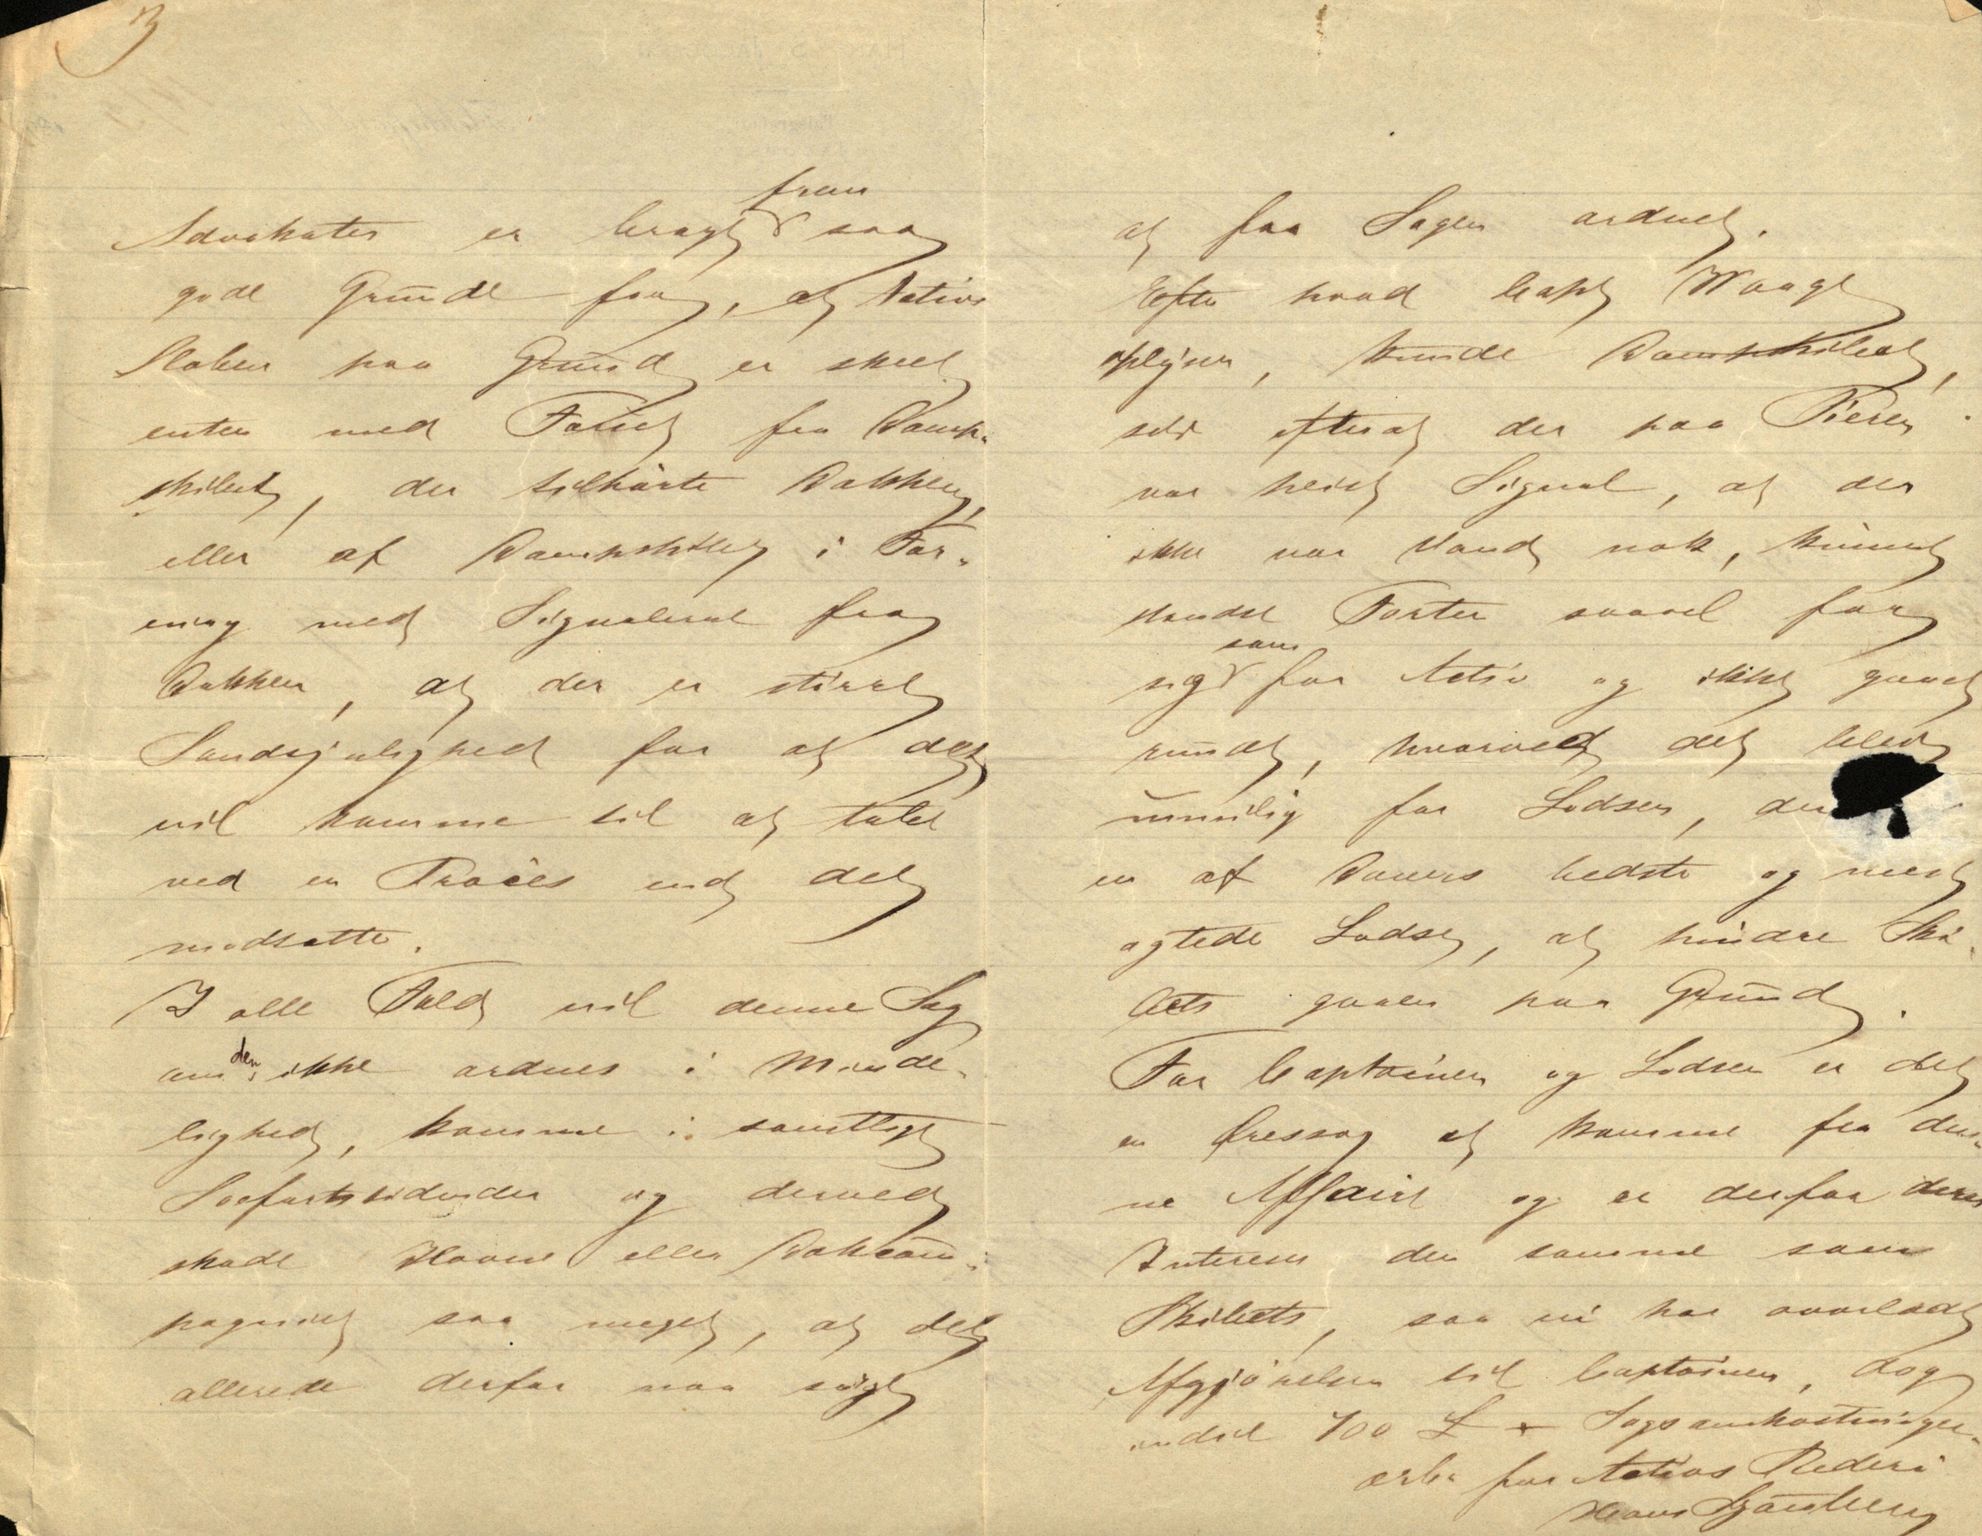 3
fram
Advokater er bragt saa
gode Grunde for, at Activs
Støden paa Grund er skeet
enten med Tauet fra Damp-
skibet, der tilhørte Dokken,
eller af Dampskibet i For-
ening med Signaleret fra
Dokken, at der er størst
Sandsynlighed for at det
vil komme til at tabe
ved en Proces end det
modsatte.
I alle Fald vil denne Sag
om den ikke ordnes i Minde-
lighed, komme i samtlige
Søfartstidender og derved
skade Havne eller Dokcom-
pagniet saa meget, at det
allerede derfor maa søge
at faa Sagen ordnet.
Efter hvad Capt Waage
oplyser, kunde Dampskibet,
selv efterat der paa Pieren
var heist Signal, at der
ikke var Vand nok, kunnet
standse Farten saavel for
sig som for Activ og ikke gaaet
rundt, hvorved det blev
umulig for Lodsen, der
er af Dovers bedste og mest
agtede Lodser, at hindre Ski-
bets gaaen paa Grund.
For Captainen og Lodsen er det
en Æressag at komme fra den-
ne Affaire og er derfor deres
Interesse den samme som
Skibets, saa vi har overladt
Afgjørelsen til Captainen, dog
indtil 700 £ + Sagsomkostninger.
ærb. for Activs Rederi
Hans